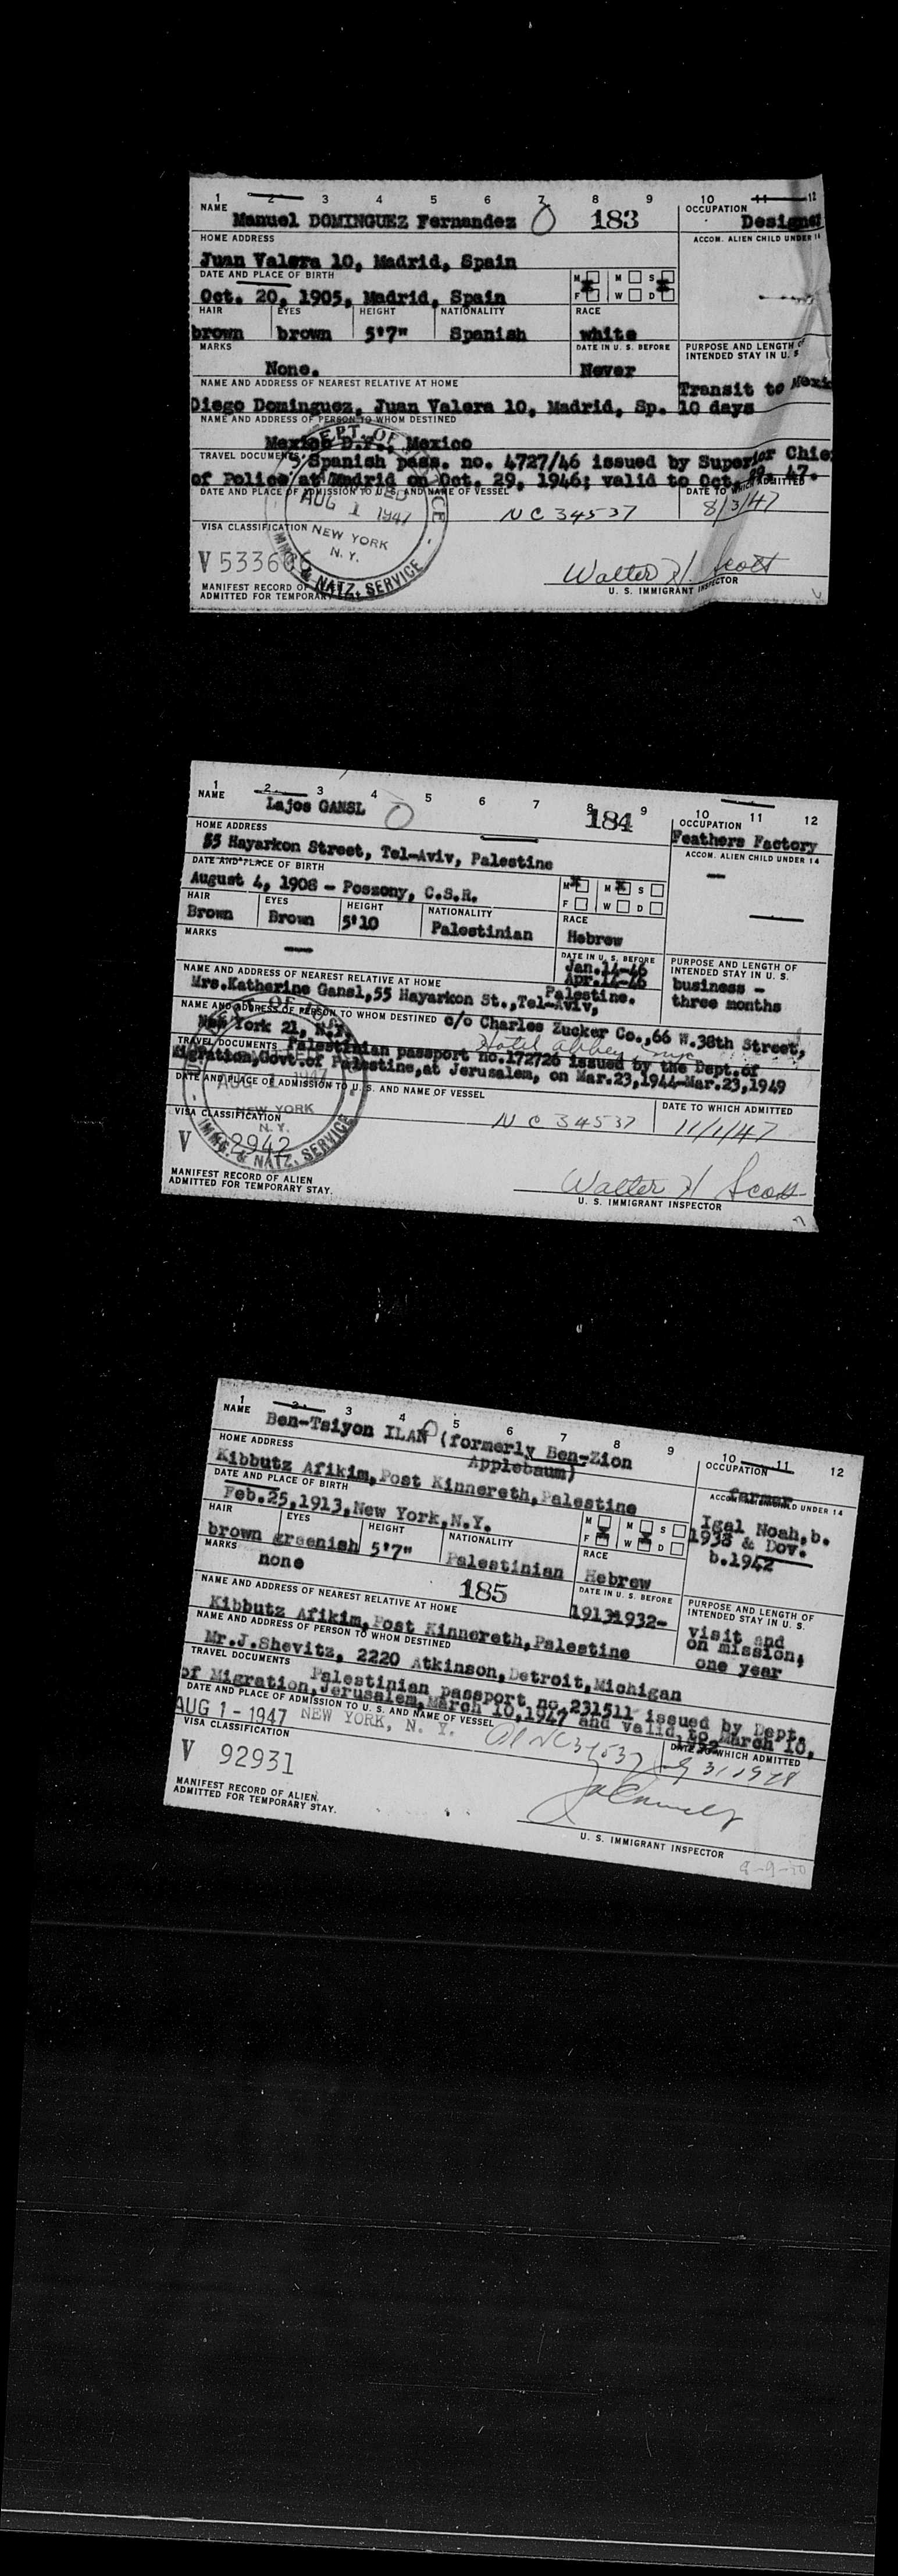 1 2 3 4 5 6 7 8 9 10 11 12
NAME OCCUPATION
Manuel DOMINGUEZ Fernandez 183 Designer
HOME ADDRESS ACCOM. ALIEN CHILD UNDER 14
Juan Valera 10, Madrid, Spain
DATE AND PLACE OF BIRTH M M S
Oct. 20, 1905, Madrid, Spain F W D
HAIR EYES HEIGHT NATIONALITY RACE
brown brown 5'7" Spanish white
MARKS DATE IN U. S. BEFORE PURPOSE AND LENGTH OF
INTENDED STAY IN U. S.
None. Never
NAME AND ADDRESS OF NEAREST RELATIVE AT HOME Transit to Mexi
Diego Dominguez, Juan Valera 10, Madrid, Sp. 10 days
NAME AND ADDRESS OF PERSON TO WHOM DESTINED
Mexico D.F., Mexico
TRAVEL DOCUMENTS Spanish pass. no. 4727/46 issued by Superior Chie
of Police at Madrid on Oct. 29, 1946; valid to Oct. 29, 47.
DATE AND PLACE OF ADMISSION TO U. S. AND NAME OF VESSEL DATE TO WHICH ADMITTED
AUG 1 1947 NC 34537 8/3/47
VISA CLASSIFICATION NEW YORK
N. Y.
V 53360
IMMG. & NATZ. SERVICE
Walter H. Scott
MANIFEST RECORD OF
ADMITTED FOR TEMPORARY
U. S. IMMIGRANT INSPECTOR
1 2 3 4 5 6 7 8 9 10 11 12
NAME OCCUPATION
Lajos GANSL 184 Feathers Factory
HOME ADDRESS ACCOM. ALIEN CHILD UNDER 14
55 Hayarkon Street, Tel-Aviv, Palestine
DATE AND PLACE OF BIRTH M M S
August 4, 1908 - Poszony, C.S.R. F W D
HAIR EYES HEIGHT NATIONALITY RACE
Brown Brown 5'10 Palestinian Hebrew
MARKS DATE IN U. S. BEFORE PURPOSE AND LENGTH OF
INTENDED STAY IN U. S.
Jan.14-46
Apr.14-46 business -
three months
NAME AND ADDRESS OF NEAREST RELATIVE AT HOME
Mrs.Katherine Gansl,55 Hayarkon St.,Tel-Aviv, Palestine.
NAME AND ADDRESS OF PERSON TO WHOM DESTINED c/o Charles Zucker Co.,66 W.38th Street,
New York 21, N.Y. Hotel Abbey nyc
TRAVEL DOCUMENTS Palestinian passport no.172726 issued by the Dept.of
Migration,Govt.of Palestine,at Jerusalem, on Mar.23,1944-Mar.23,1949
DATE AND PLACE OF ADMISSION TO U. S. AND NAME OF VESSEL DATE TO WHICH ADMITTED
NC 34537 11/1/47
VISA CLASSIFICATION NEW YORK
N. Y.
V
IMMG. & NATZ. SERVICE
Walter H Scott
MANIFEST RECORD OF ALIEN
ADMITTED FOR TEMPORARY STAY.
U. S. IMMIGRANT INSPECTOR
1 2 3 4 5 6 7 8 9 10 11 12
NAME OCCUPATION
Ben-Tsiyon ILAN (formerly Ben-Zion Applebaum) farmer
HOME ADDRESS ACCOM. ALIEN CHILD UNDER 14
Kibbutz Afikim,Post Kinnereth,Palestine
DATE AND PLACE OF BIRTH M M S
Feb.25,1913,New York,N.Y. F W D
Igal Noah,b.
1938 & Dov.
b.1942
HAIR EYES HEIGHT NATIONALITY RACE
brown greenish 5'7" Palestinian Hebrew
MARKS DATE IN U. S. BEFORE PURPOSE AND LENGTH OF
INTENDED STAY IN U. S.
none 185 1913-1932-
visit and
on mission,
one year
NAME AND ADDRESS OF NEAREST RELATIVE AT HOME
Kibbutz Afikim,Post Kinnereth,Palestine
NAME AND ADDRESS OF PERSON TO WHOM DESTINED
Mr.J.Shevitz, 2220 Atkinson,Detroit,Michigan
TRAVEL DOCUMENTS Palestinian passport no.231511 issued by Dept.
of Migration,Jerusalem,March 10,1947 and valid to March 10,
DATE AND PLACE OF ADMISSION TO U. S. AND NAME OF VESSEL DATE TO WHICH ADMITTED
AUG 1 - 1947 NEW YORK, N. Y.
VISA CLASSIFICATION
V 92931
MANIFEST RECORD OF ALIEN
ADMITTED FOR TEMPORARY STAY.
U. S. IMMIGRANT INSPECTOR